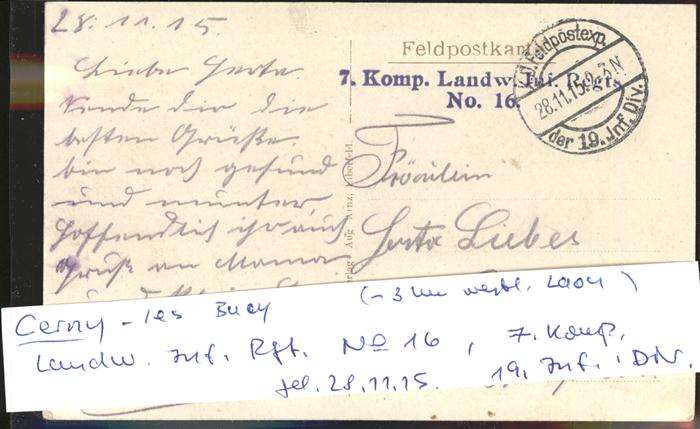 28.11.15.
Liebe Herta.
Sende dir die
besten Grüße.
bin noch gesund
und munter,
hoffendlich ihr auch
Gruß an Mama
und
Feldpostkarte
7. Komp. Landw. Inf. Regts.
No. 16.
Feldpostexp.
28.11.15.
der 19. Inf. Div.
Fräulein
Herta Liebes
Cerny - les Bucy (~3 km westl. Laon)
Landw. Inf. Rgt. No 16, 7. Komp.
gel. 28.11.15. 19. Inf. Div.